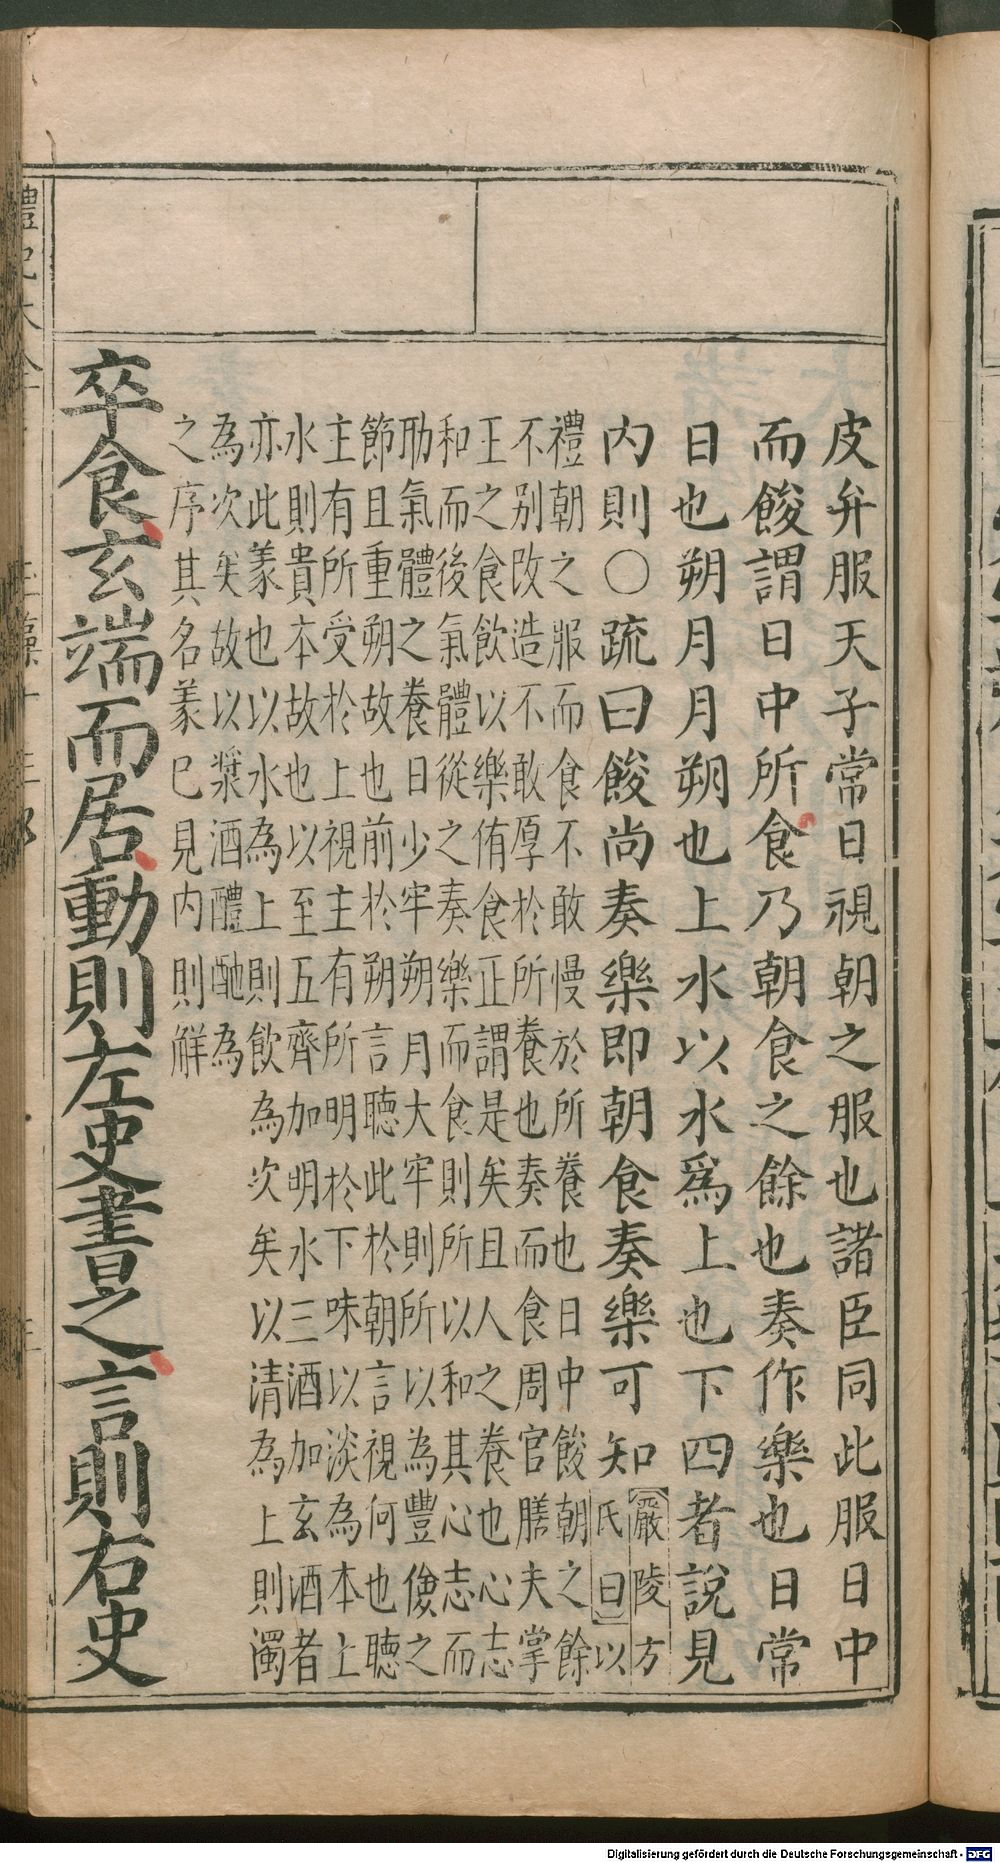 皮弁服天子常日視朝之服也諸臣同此服日中
而餕謂日中所食乃朝食之餘也奏作樂也日常
日也朔月月朔也上水以水爲上也下四者說見
內則〇疏曰餕尚奏樂即朝食奏樂可知
嚴陵方
氏曰以
禮朝之服而食不敢慢於所養也日中餕朝之餘
不别改造不敢厚於所養也奏而食周官膳夫掌
王之食飲以樂侑食正謂是矣且人之養也心志
和而後氣體從之奏樂而食則所以和其心志而
助氣體之養日少牢朔月大牢則所以為豐儉之
節且重朔故也前於朔言聽此於朝言視何也聽
主有所受於上視主有所明於下味以淡為本上
水則貴本故也以至五齊加明水三酒加玄酒者
亦此義也以水為上則飲為次矣以清為上則濁
為次矣故以漿酒醴酏為
之序其名義已見內則解
卒食玄端而居動則左史書之言則右史
禮記大全
玉藻十三
三
Digitalisierung gefördert durch die Deutsche Forschungsgemeinschaft - DFG